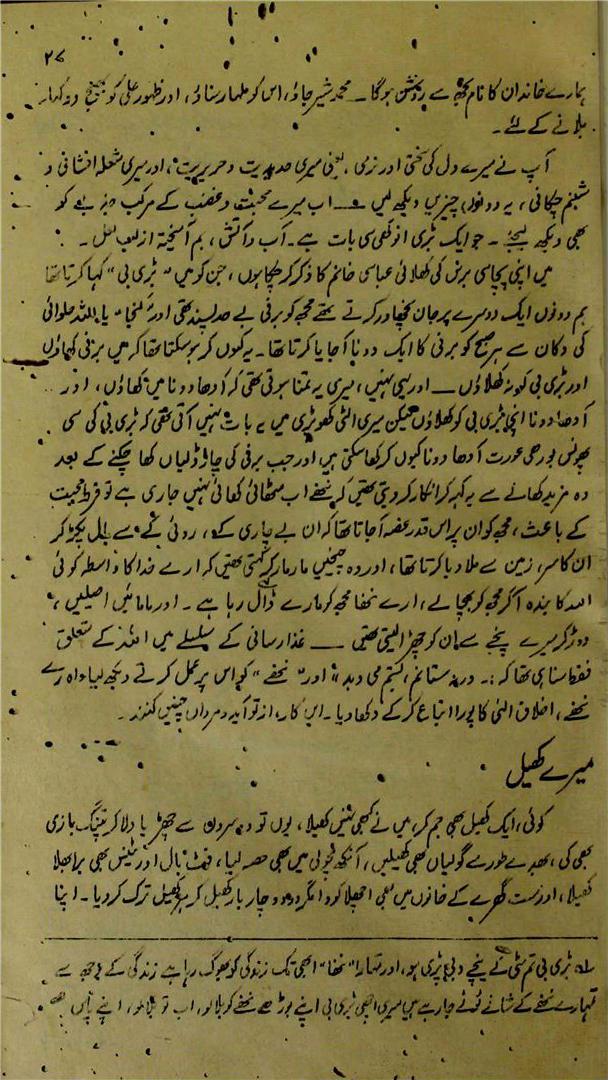 ۲۷
ہمارے خاندان کا نام تجھ سے روشن ہوگا ۔ محمد شیر جاؤ، اس کو ملہار سناؤ، اور ظہور علی کو بھیج دو کہار
بلانے کے لئے ۔
آپ نے میرے دل کی سختی اور نرمی، یعنی میری حدیدیت و حریریت، اور میری شعلہ افشانی و
شبنم چکانی، یہ دونوں چیزیں دیکھ لیں ۔ اب میرے محبت و غضب کے مرکب جذبے کو
بھی دیکھ لیجئے ۔ جو ایک بڑی انوکھی سی بات ہے ۔ آب و آتش، بہم آمیختہ از لب لعل ۔
میں اپنی پچاسی برس کی کھلائی عباسی خانم کا ذکر کر چکا ہوں، جن کو میں "بڑی بی" کہا کرتا تھا
ہم دونوں ایک دوسرے پر جان نچھاور کرتے تھے مجھ کو برفی بے حد پسند تھی اور یا اللہ حلوائی
کی دکان سے ہر صبح کو برفی کا ایک دونا آ جایا کرتا تھا ۔ یہ کیوں کر ہو سکتا تھا کہ میں برفی کھاؤں
اور بڑی بی کو نہ کھلاؤں ۔ اور یہی نہیں، میری یہ تمنا ہوتی تھی کہ آدھا دونا میں کھاؤں، اور
آدھا دونا اپنی بڑی بی کو کھلاؤں لیکن میری الٹی کھوپڑی میں یہ بات نہیں آتی تھی کہ بڑی بی کی سی
پھونس بوڑھی عورت آدھا دونا کیوں کر کھا سکتی ہیں اور جب برفی کی چار ڈلیاں کھا چکنے کے بعد
وہ مزید کھانے سے یہ کہہ کر انکار کر دیتی تھیں کہ ننھے اب مٹھائی کھائی نہیں جا رہی ہے تو فرط محبت
کے باعث، مجھ کو ان پر اس قدر غصہ آ جاتا تھا کہ ان بے چاری کے، روئی کے سے بال پکڑ کر
ان کا سر، زمین سے ملا دیا کرتا تھا، اور وہ چیخیں مار مار کر کہتی تھیں کہ ارے خدا کا واسطہ کوئی
اللہ کا بندہ آ کر مجھ کو بچا لے، ارے ننھا مجھ کو مارے ڈال رہا ہے ۔ اور مامائیں اصیلیں،
دوڑ کر میرے پنجے سے ان کو چھڑا لیتی تھیں ۔ غذا رسانی کے سلسلے میں اللہ کے متعلق
فقط سنا ہی تھا کہ :۔ ورنہ ستانم، بستم می دہد" اور "ننھے" کو اس پر عمل کرتے دیکھ لیا، واہ رے
ننھے، اخلاق الٰہی کا پورا اتباع کر کے دکھا دیا ۔ ایں کار، از تو آید و مرداں چنیں کنند ۔
میرے کھیل
کوئی، ایک کھیل بھی جم کر، میں نے کبھی نہیں کھیلا، یوں تو دوسروں سے چھڑ یا دلا کر پتنگ بازی
بھی کی، بھدے طور سے گولیاں بھی کھیلیں، آنکھ مچولی میں بھی حصہ لیا، فٹ بال اور ٹینس بھی برا بھلا
کھیلا، اور ست گھرے کے خانوں میں بھی اچھلا کودا مگر دو دو چار بار کھیل کر ہر کھیل ترک کر دیا ۔ اپنا
۱؎ بڑی بی تم مٹی کے نیچے دبی پڑی ہو، اور تمہارا "ننھا" ابھی تک زندگی کو بھوگ رہا ہے زندگی کے بوجھ سے
تمہارے ننھے کے شانے ٹوٹے جا رہے ہیں میری اچھی بڑی بی اپنے بوڑھے ننھے کو بلا لو، اب تو بلا لو، اپنے پاس